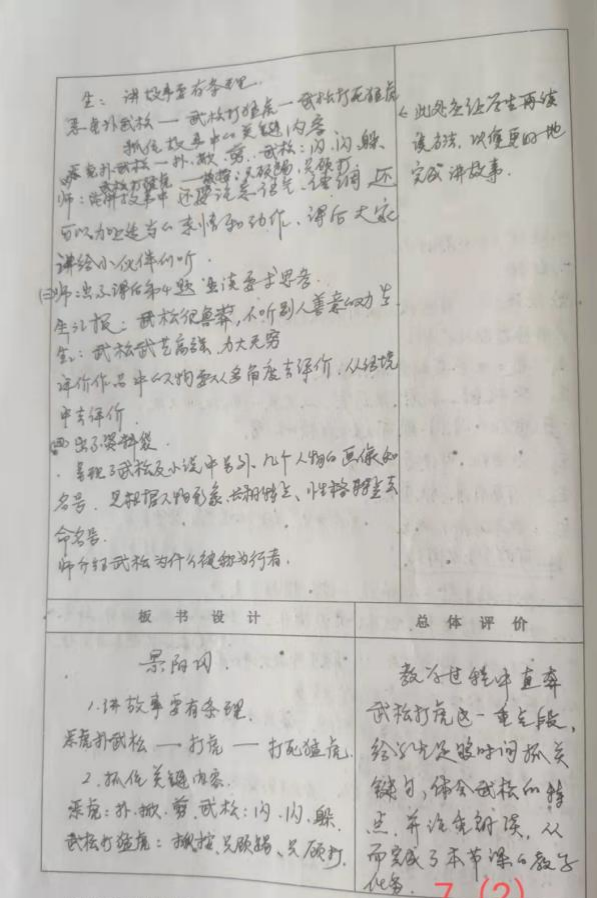 生：讲故事要有条理。
恶虎扑武松 — 武松打猛虎 — 武松打死猛虎
抓住故事中的关键内容
恶虎扑武松 — 扑、掀、剪. 武松：闪、闪、躲、
武松打猛虎 — 只顾踢、只顾打
师：讲故事中还要注意语气、语调 还
可以加上适当的表情和动作、课后大家
讲给小伙伴们听.
㈢师：出示课后第4题 面读要求思考.
生汇报：武松很鲁莽，不听别人善意的劝告.
生：武松武艺高强、力大无穷
评价作品中的人物要从多角度去评价，从语境
中去评价.
㈣出示资料袋.
呈现了武松及小说中另外几个人物的画像和
名号. 是根据人物形象、长相特点、性格
命名号.
师介绍武松为什么被称为行者.
此处应让学生再读
方法. 以便更好地
完成讲故事.
板书设计
景阳冈.
1.讲故事要有条理.
恶虎扑武松 — 打虎 — 打死猛虎.
2.抓住关键内容.
恶虎：扑、掀、剪、武松：闪、闪、躲.
武松打猛虎：揪、按、只顾踢、只顾打.
总体评价
教学过程中直奔
武松打虎这一重点段,
给学生足够时间抓关
键句, 体会武松的特
点. 并论 从
而完成了本节课的教学
任务.
7 (2)